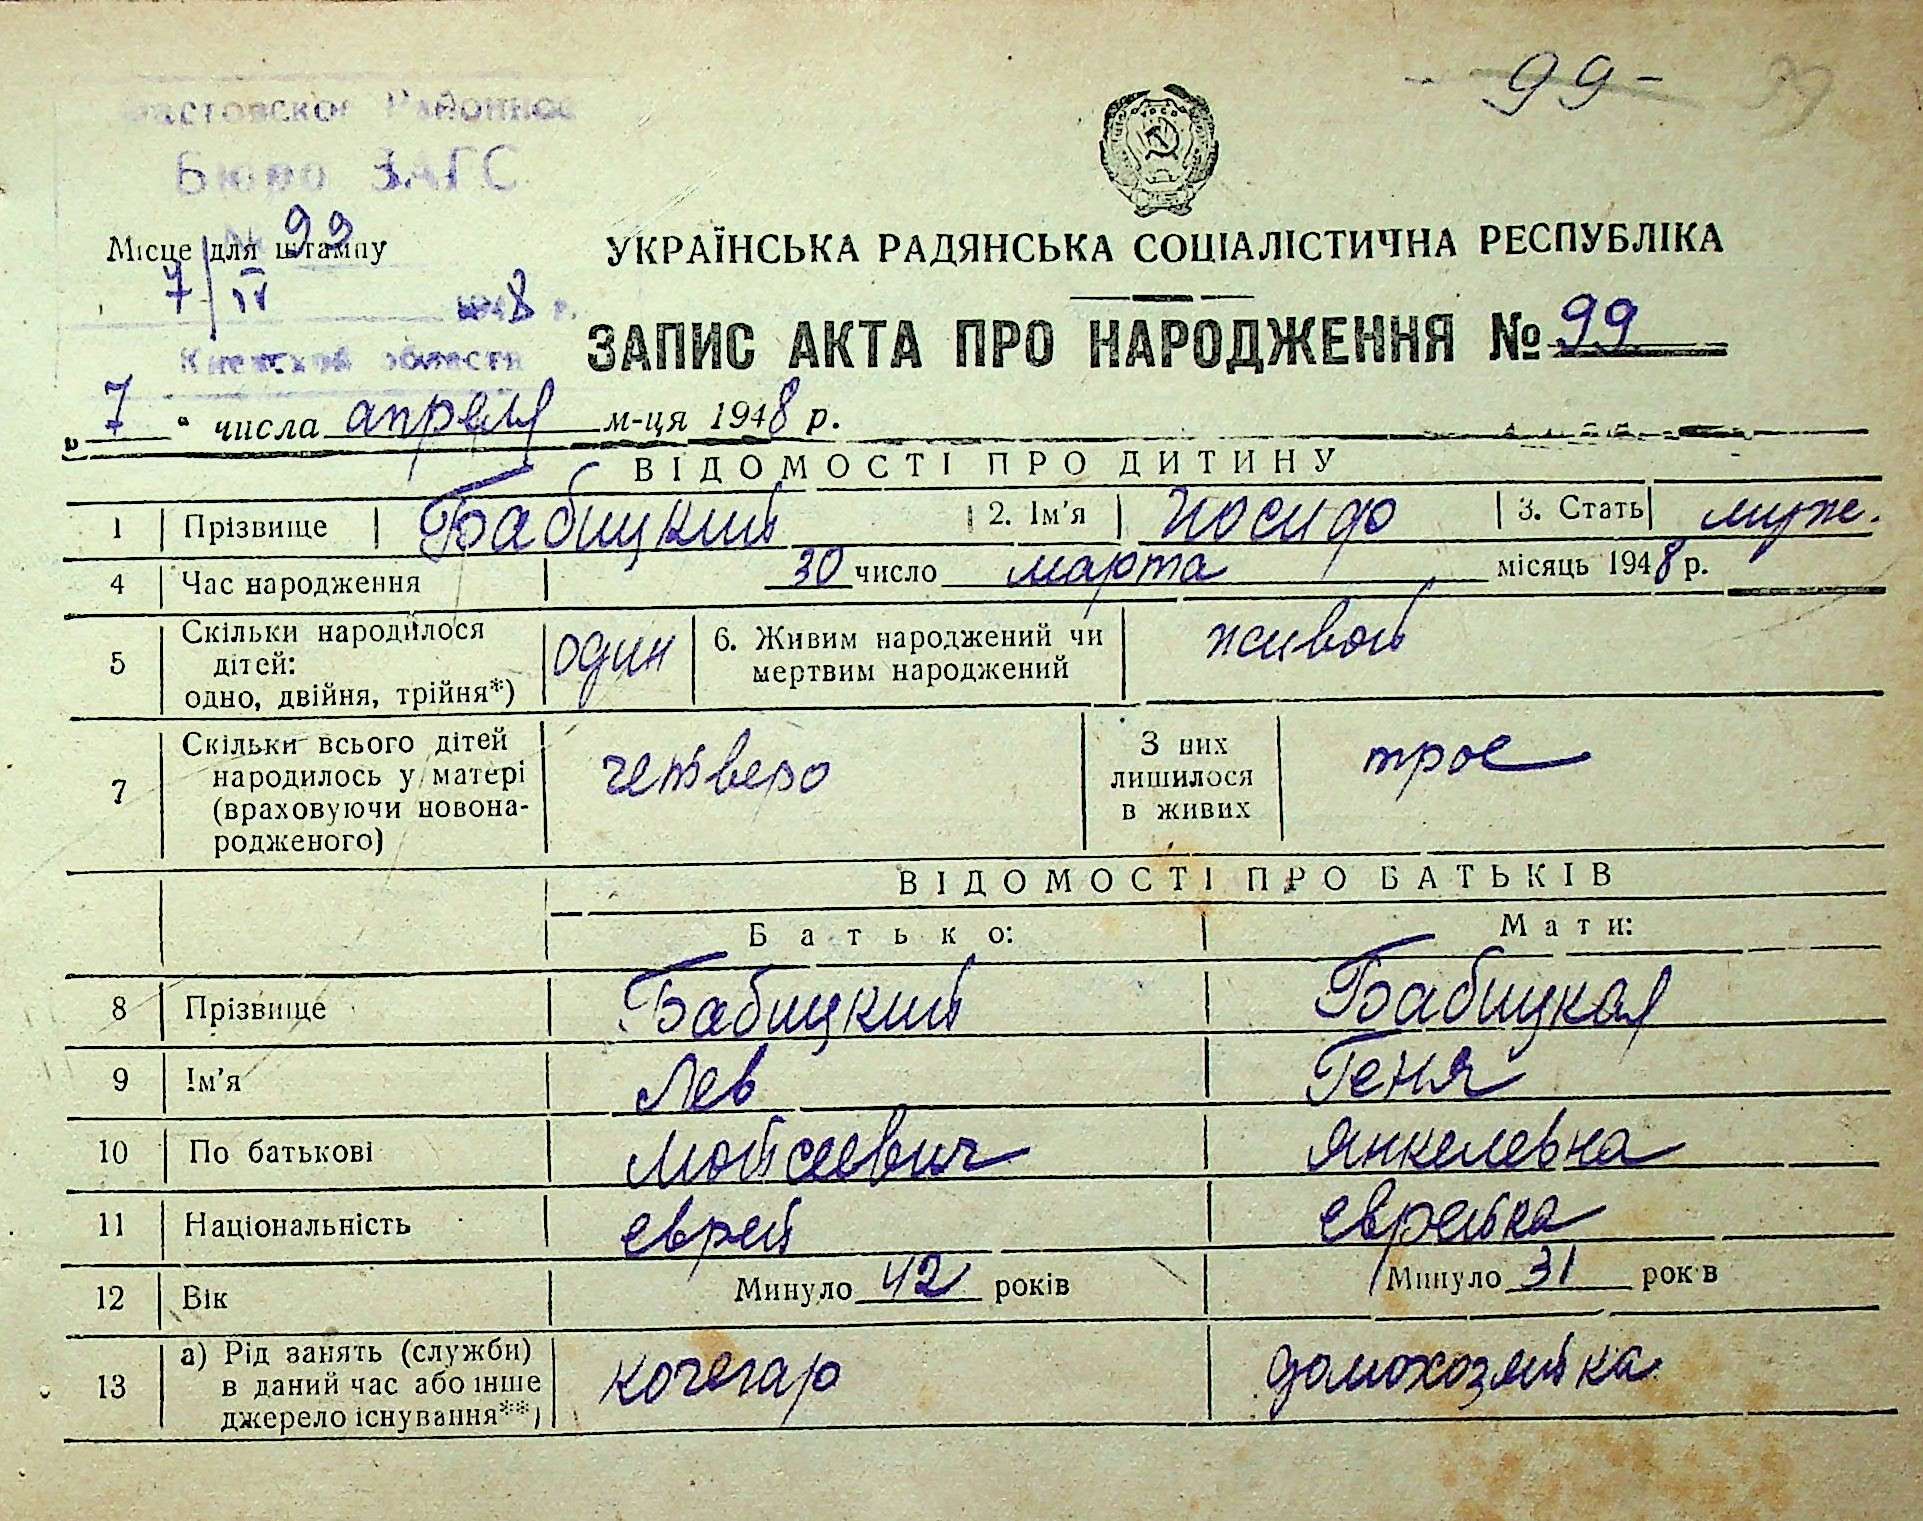 - 99 -
Районное
Бюро ЗАГС
№ 99
Місце для штампу
7/IV 1948 г.
Киевской области
УКРАЇНСЬКА РАДЯНСЬКА СОЦІАЛІСТИЧНА РЕСПУБЛІКА
ЗАПИС АКТА ПРО НАРОДЖЕННЯ № 99
„ 7 “ числа апреля м-ця 1948 р.
ВІДОМОСТІ ПРО ДИТИНУ
1 Прізвище Бабицкий 2. Ім'я Иосиф 3. Стать муж.
4 Час народження 30 число марта місяць 1948 р.
5 Скільки народилося дітей: одно, двійня, трійня*) один 6. Живим народжений чи мертвим народжений живой
7 Скільки всього дітей народилось у матері (враховуючи новонародженого) четверо З них лишилося в живих трое
ВІДОМОСТІ ПРО БАТЬКІВ
Батько: Мати:
8 Прізвище Бабицкий Бабицкая
9 Ім'я Лев Геня
10 По батькові Мойсеевич Янкелевна
11 Національність еврей еврейка
12 Вік Минуло 42 років Минуло 31 рок в
13 а) Рід занять (служби) в даний час або інше джерело існування**) кочегар домохозяйка